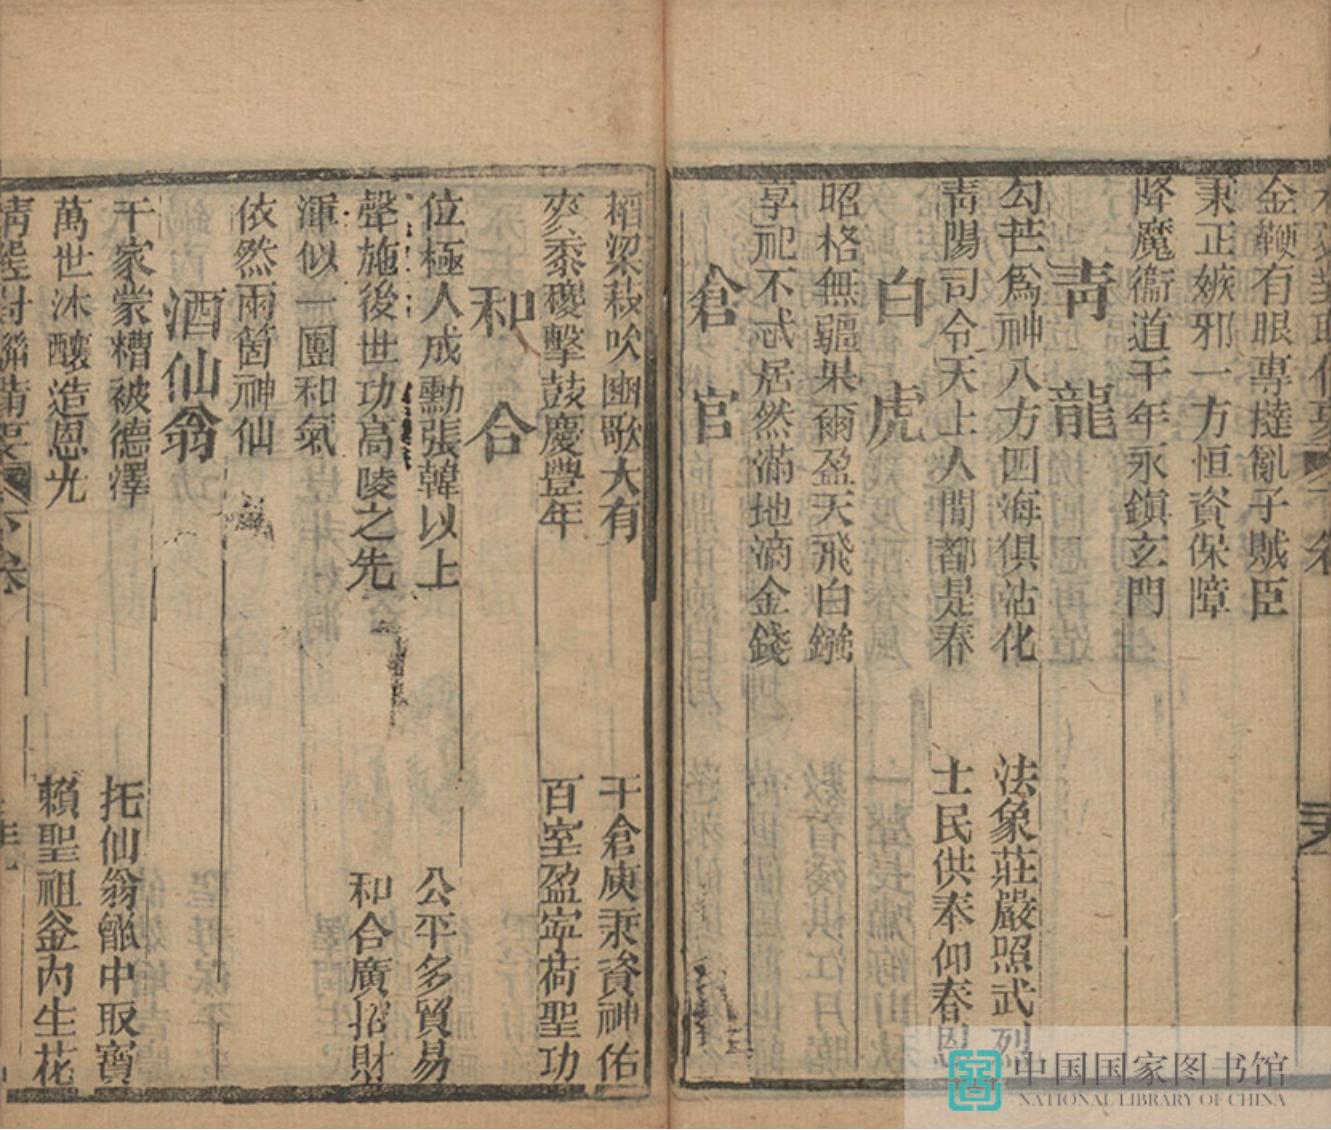 金鞭有眼專撻亂子賊臣
秉正嫉邪一方恒資保障
降魔衞道千年永鎮玄門
青龍
勾芒爲神八方四海俱沾化
法象莊嚴照武烈
青陽司令天上人間都是春
士民供奉仰春恩
白虎
昭格無疆果爾盈天飛白鏹
享祀不忒居然滿地滴金錢
倉官
稻粱菽吹豳歌大有
千倉庾秉資神佑
麥黍稷擊鼓慶豐年
百室盈寧荷聖功
和合
位極人成勳張韓以上
公平多貿易
聲施後世功高陵之先
和合廣招財
渾似一團和氣
依然兩箇神仙
酒仙翁
千家蒙糟被德澤
托仙翁甑中取寶
萬世沐釀造恩光
賴聖祖釡内生花
下卷
中国国家图书馆
NATIONAL LIBRARY OF CHINA